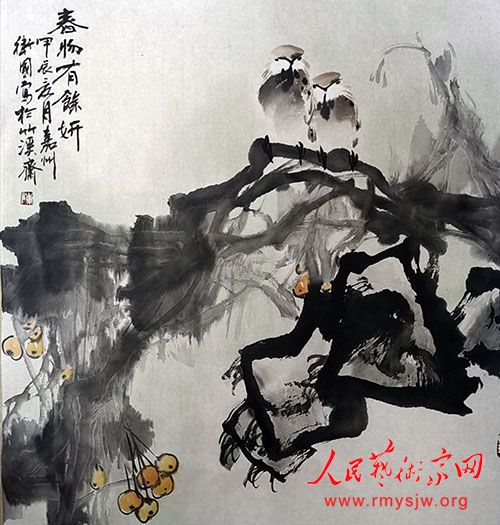 春物有餘妍
甲辰亥月嘉州
衛國寫於竹溪齋
人民藝術家网
www.rmysjw.org